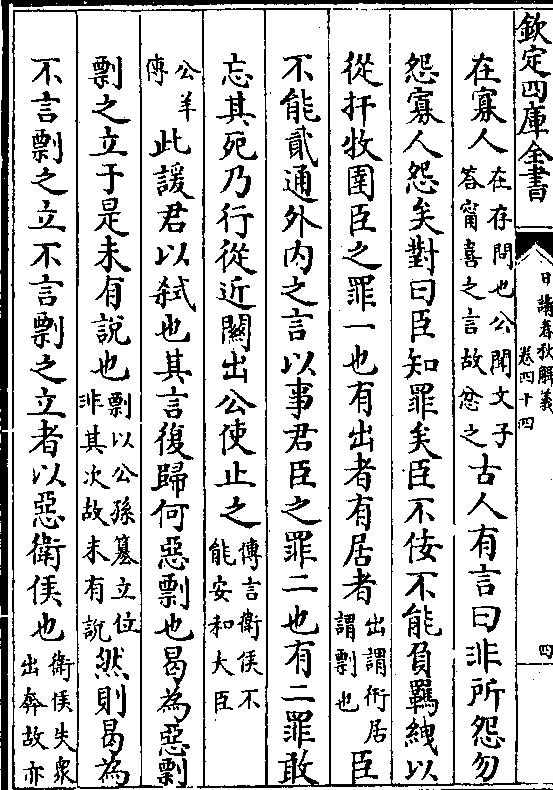 欽定四庫全書
日講春秋解義
卷四十四
四
在寡人在存問也公聞文子答甯喜之言故忿之古人有言曰非所怨勿
怨寡人怨矣對曰臣知罪矣臣不佞不能負羈絏以
從扞牧圉臣之罪一也有出者有居者出謂衎居謂剽也臣
不能貳通外内之言以事君臣之罪二也有二罪敢
忘其死乃行從近關出公使止之傳言衛侯不能安和大臣
公羊傳此諼君以弑也其言復歸何惡剽也曷為惡剽
剽之立于是未有說也剽以公孫簒立位非其次故未有說然則曷為
不言剽之立不言剽之立者以惡衛侯也衛侯失衆出奔故亦